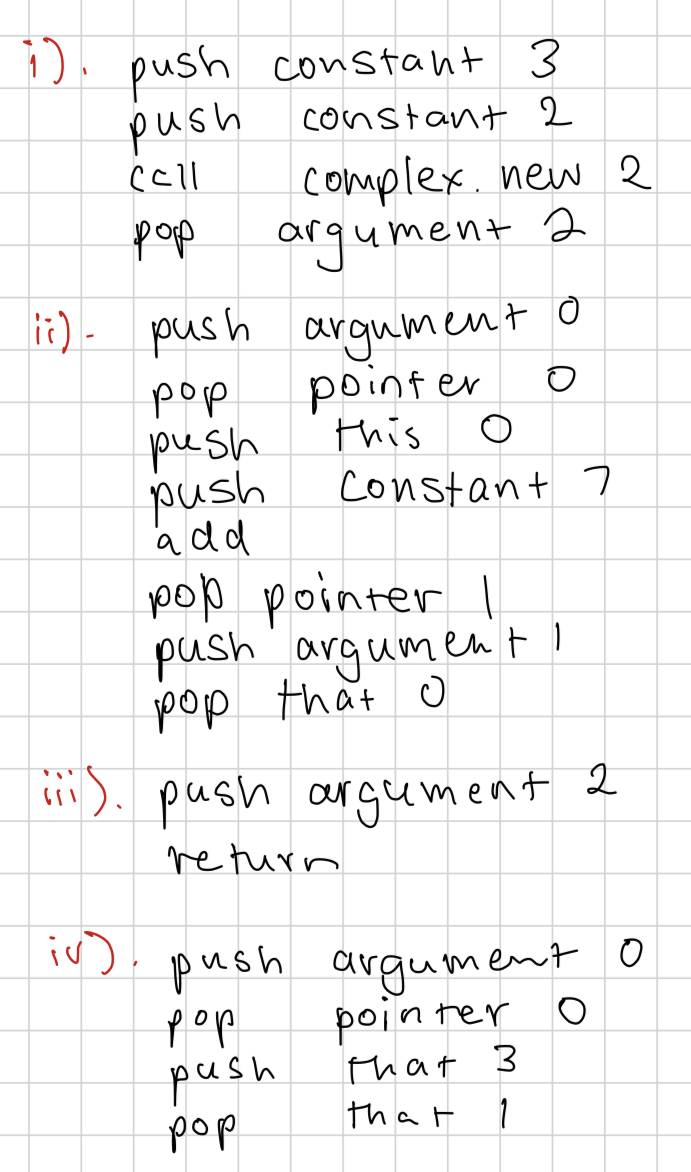 i). push constant 3
push constant 2
call complex.new 2
pop argument 2
ii). push argument 0
pop pointer 0
push this 0
push constant 7
add
pop pointer 1
push argument 1
pop that 0
iii). push argument 2
return
iv). push argument 0
pop pointer 0
push that 3
pop that 1